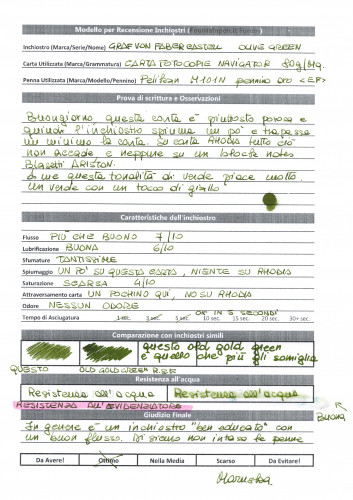 Modello per Recensione Inchiostri (
Inchiostro (Marca/Serie/Nome) GRAF VON FABER CASTELL OLIVE GREEN
Carta Utilizzata (Marca/Grammatura) CARTA FOTOCOPIE NAVIGATOR 80g/Mq.
Penna Utilizzata (Marca/Modello/Pennino) Pelikan M101N pennino oro <EF>
Prova di scrittura e Osservazioni
Buongiorno questa carta è piuttosto porosa e
quindi l'inchiostro spiuma un po' e trapassa
un minimo la carta. Su carta RHODIA tutto ciò
non accade e neppure su un blocchi notes
Blasetti ARISTON.
A me questa tonalità di verde piace molto.
Un verde con un tocco di giallo
Caratteristiche dell'inchiostro
Flusso PIÙ CHE BUONO 7/10
Lubrificazione BUONA 6/10
Sfumature TANTISSIME
Spiumaggio UN PO' SU QUESTA CARTA, NIENTE SU RHODIA
Saturazione SCARSA 4/10
Attraversamento carta UN POCHINO QUI, NO SU RHODIA
Odore NESSUN ODORE
OK IN 5 SECONDI
Tempo di Asciugatura 1 sec. 3 sec. 5 sec. 10 sec. 15 sec. 20 sec. 30+ sec.
Comparazione con inchiostri simili
questo old gold green
è quello che più gli somiglia
QUESTO OLD GOLD GREEN R&K
Resistenza all'acqua
Resistenza all'acqua Resistenza all'acqua
RESISTENZA ALL'EVIDENZIATORE
BUONA
Giudizio Finale
In genere è un inchiostro "ben educato" con
un buon flusso. Di sicuro non intasa le penne
Da Avere! Ottimo Nella Media Scarso Da Evitare!